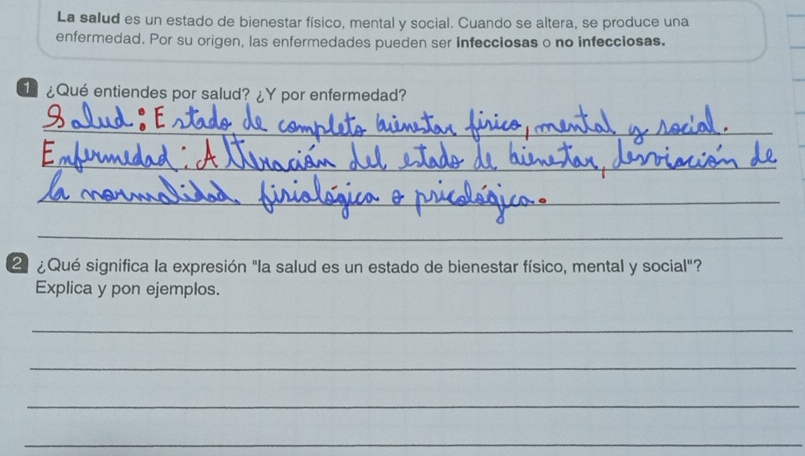 La salud es un estado de bienestar físico, mental y social. Cuando se altera, se produce una
enfermedad. Por su origen, las enfermedades pueden ser infecciosas o no infecciosas.
1 ¿Qué entiendes por salud? ¿Y por enfermedad?
Salud: Estado de completo bienestar físico, mental y social.
Enfermedad: Alteración del estado de bienestar, desviación de
la normalidad fisiológica o psicológica.
2 ¿Qué significa la expresión "la salud es un estado de bienestar físico, mental y social"?
Explica y pon ejemplos.